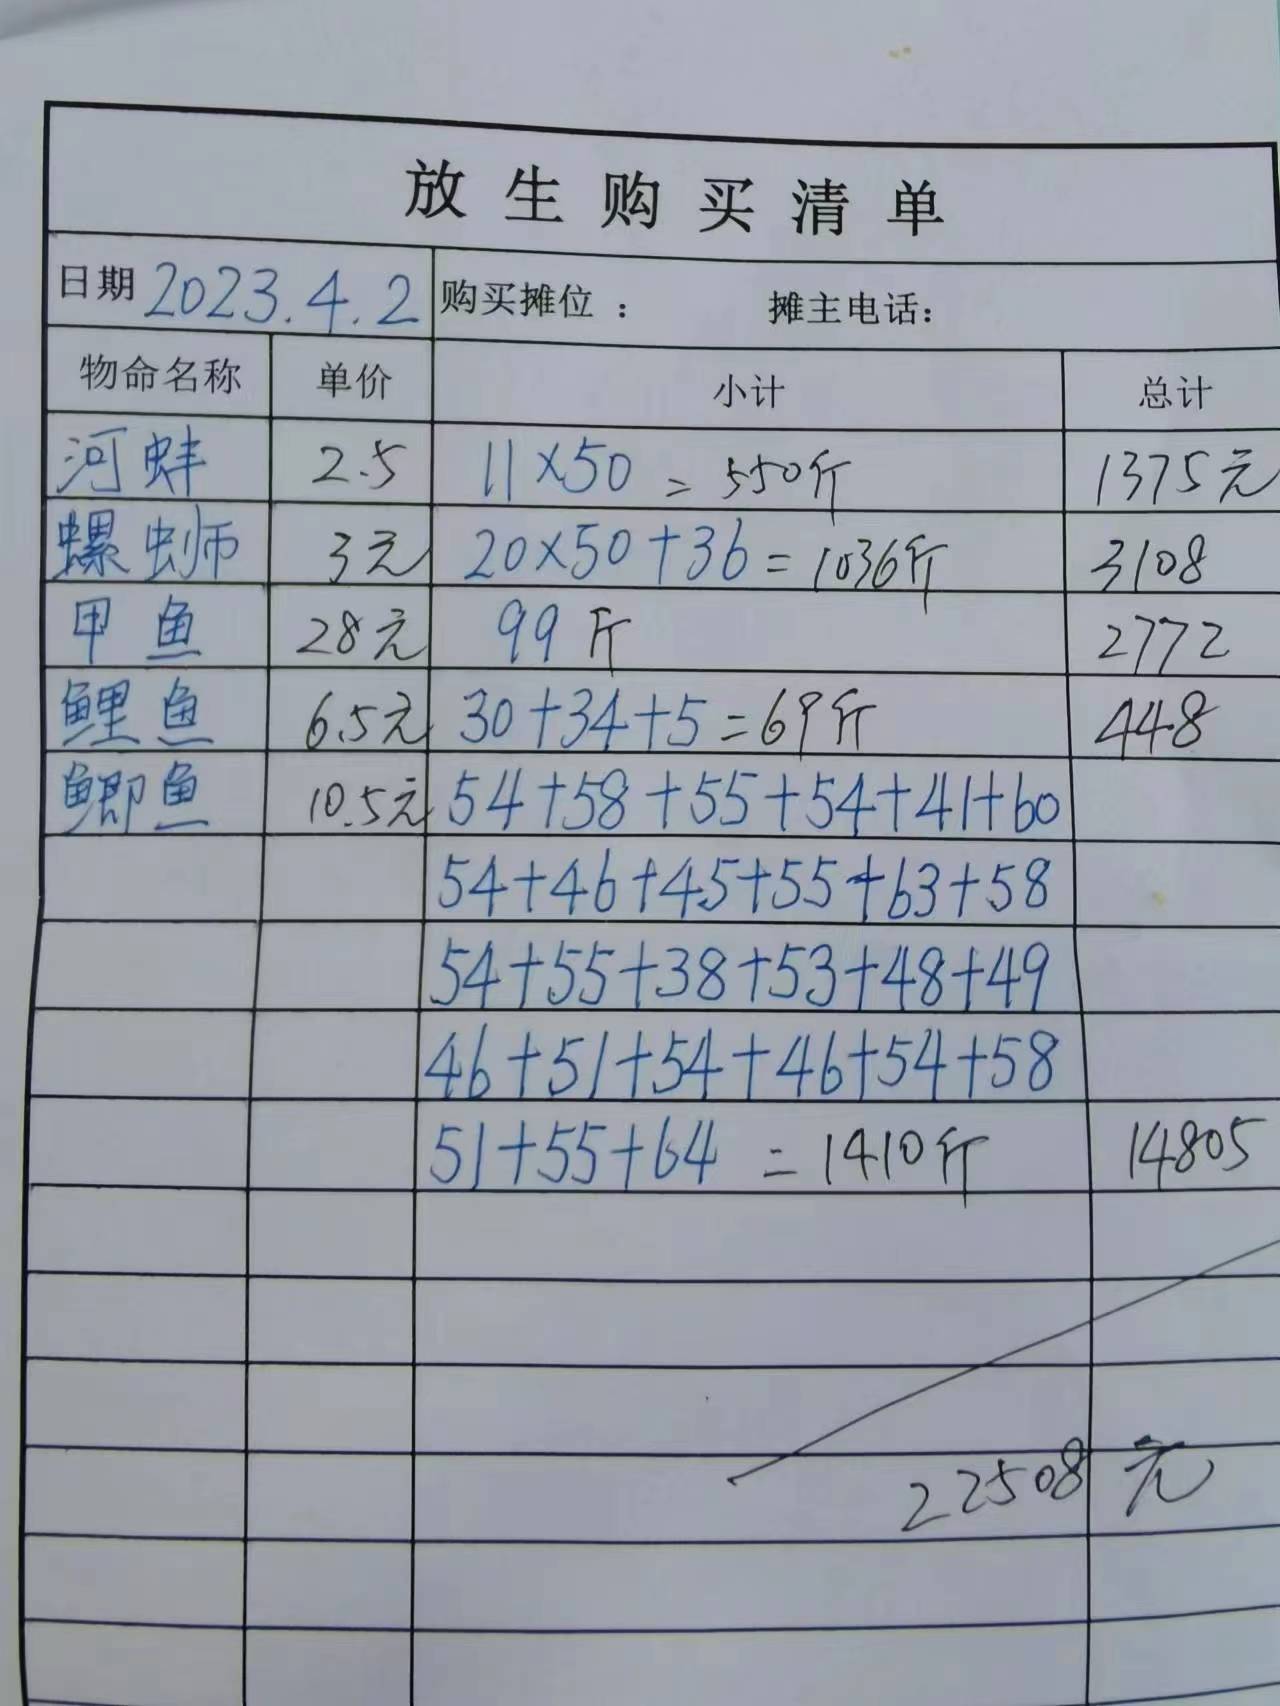 放生购买清单
日期 2023.4.2 购买摊位： 摊主电话：
物命名称 单价 小计 总计
河蚌 2.5 11×50 = 550斤 1375元
螺蛳 3元 20×50+36 = 1036斤 3108
甲鱼 28元 99斤 2772
鲤鱼 6.5元 30+34+5 = 69斤 448
鲫鱼 10.5元 54+58+55+54+41+60
54+46+45+55+63+58
54+55+38+53+48+49
46+51+54+46+54+58
51+55+64 = 1410斤 14805
22508元